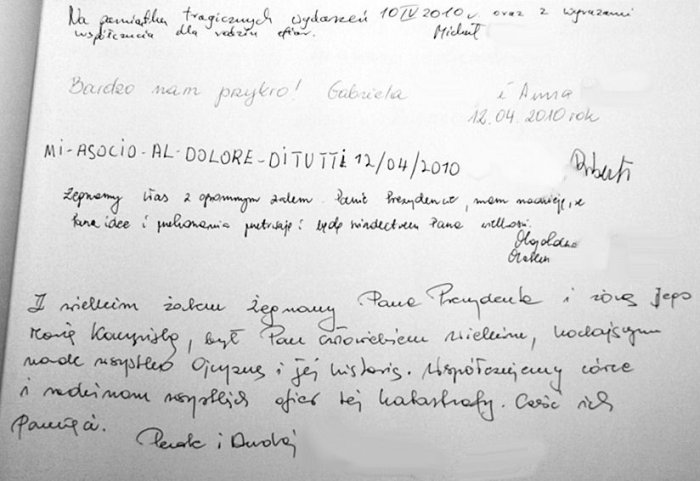 Na pamiątkę tragicznych wydarzeń 10 IV 2010 r. oraz z wyrazami
współczucia dla rodzin ofiar. Michał
Bardzo nam przykro! Gabriela i Anna
12.04.2010 rok
MI-ASOCIO-AL-DOLORE-DITUTTI 12/04/2010
Żegnamy Was z ogromnym żalem. Panie Prezydencie, mam nadzieję, że
Pana idee i przetrwają i będą świadectwem Pana wielkości.
Z wielkim żalem żegnamy Pana Prezydenta i żonę Jego
, był Pan człowiekiem wielkim, kochającym
nade wszystko Ojczyznę i jej historię. Współczujemy córce
i rodzinom wszystkich ofiar tej katastrofy. Cześć ich
Pamięci. i